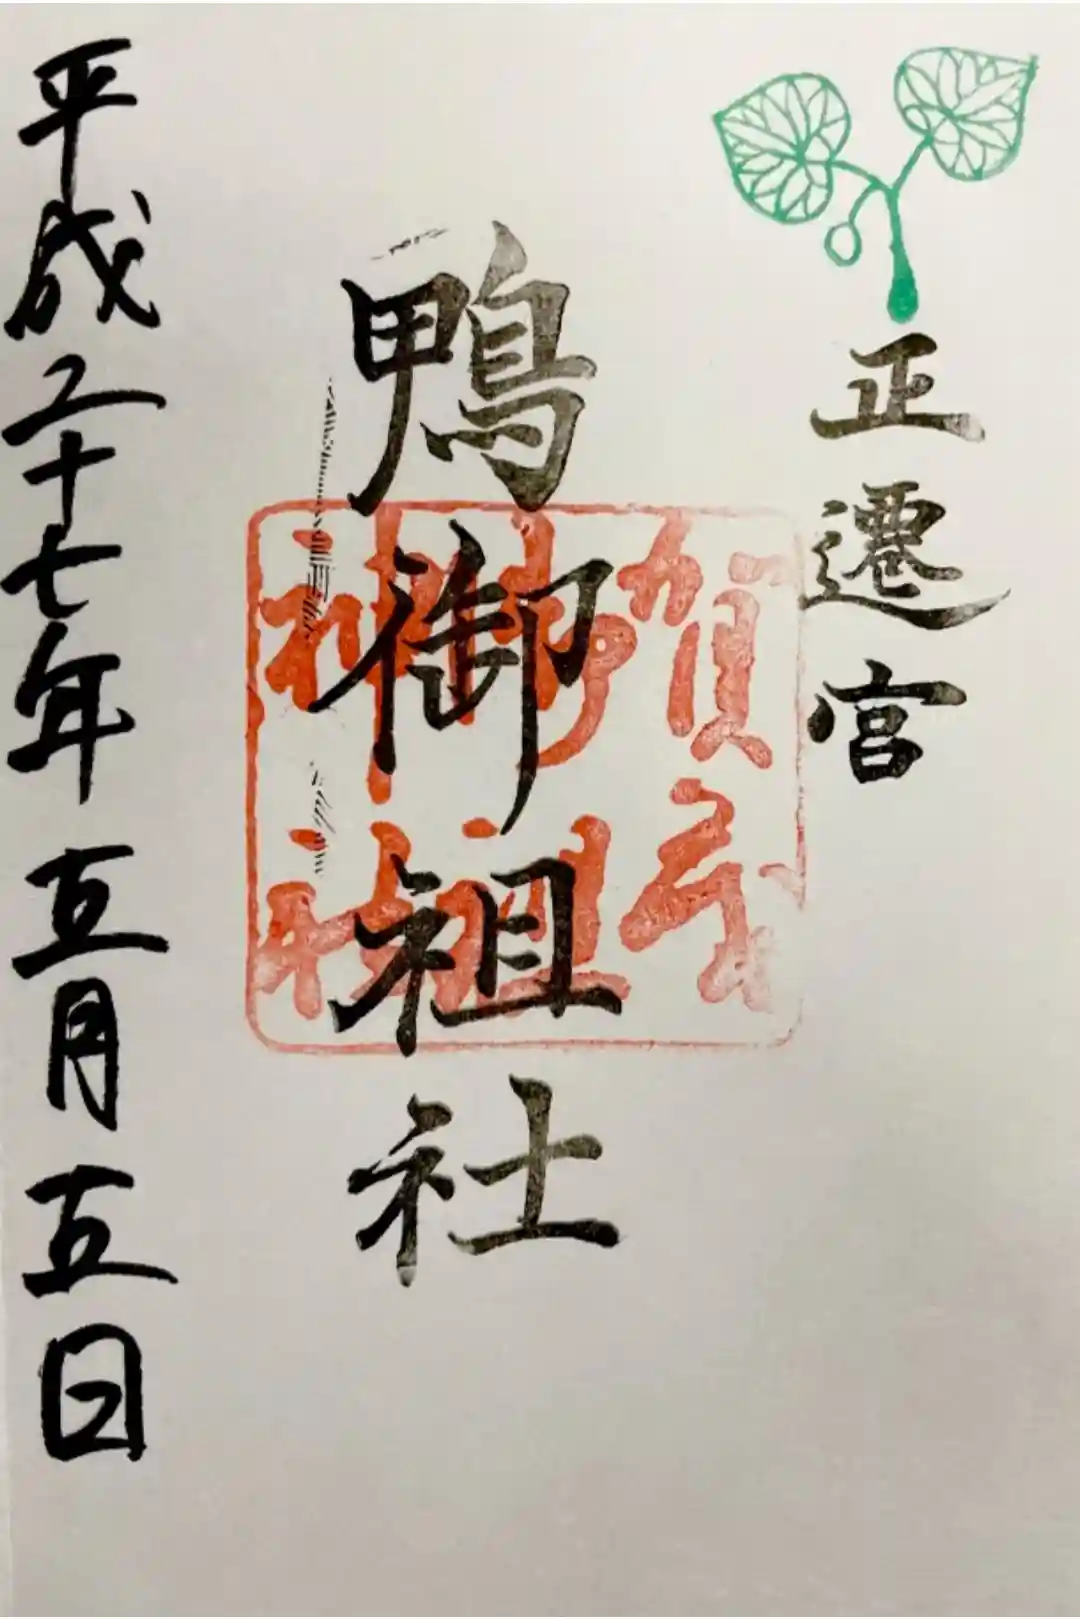 正遷宮
鴨御祖社
賀茂
御祖
神社
平成二十七年五月五日